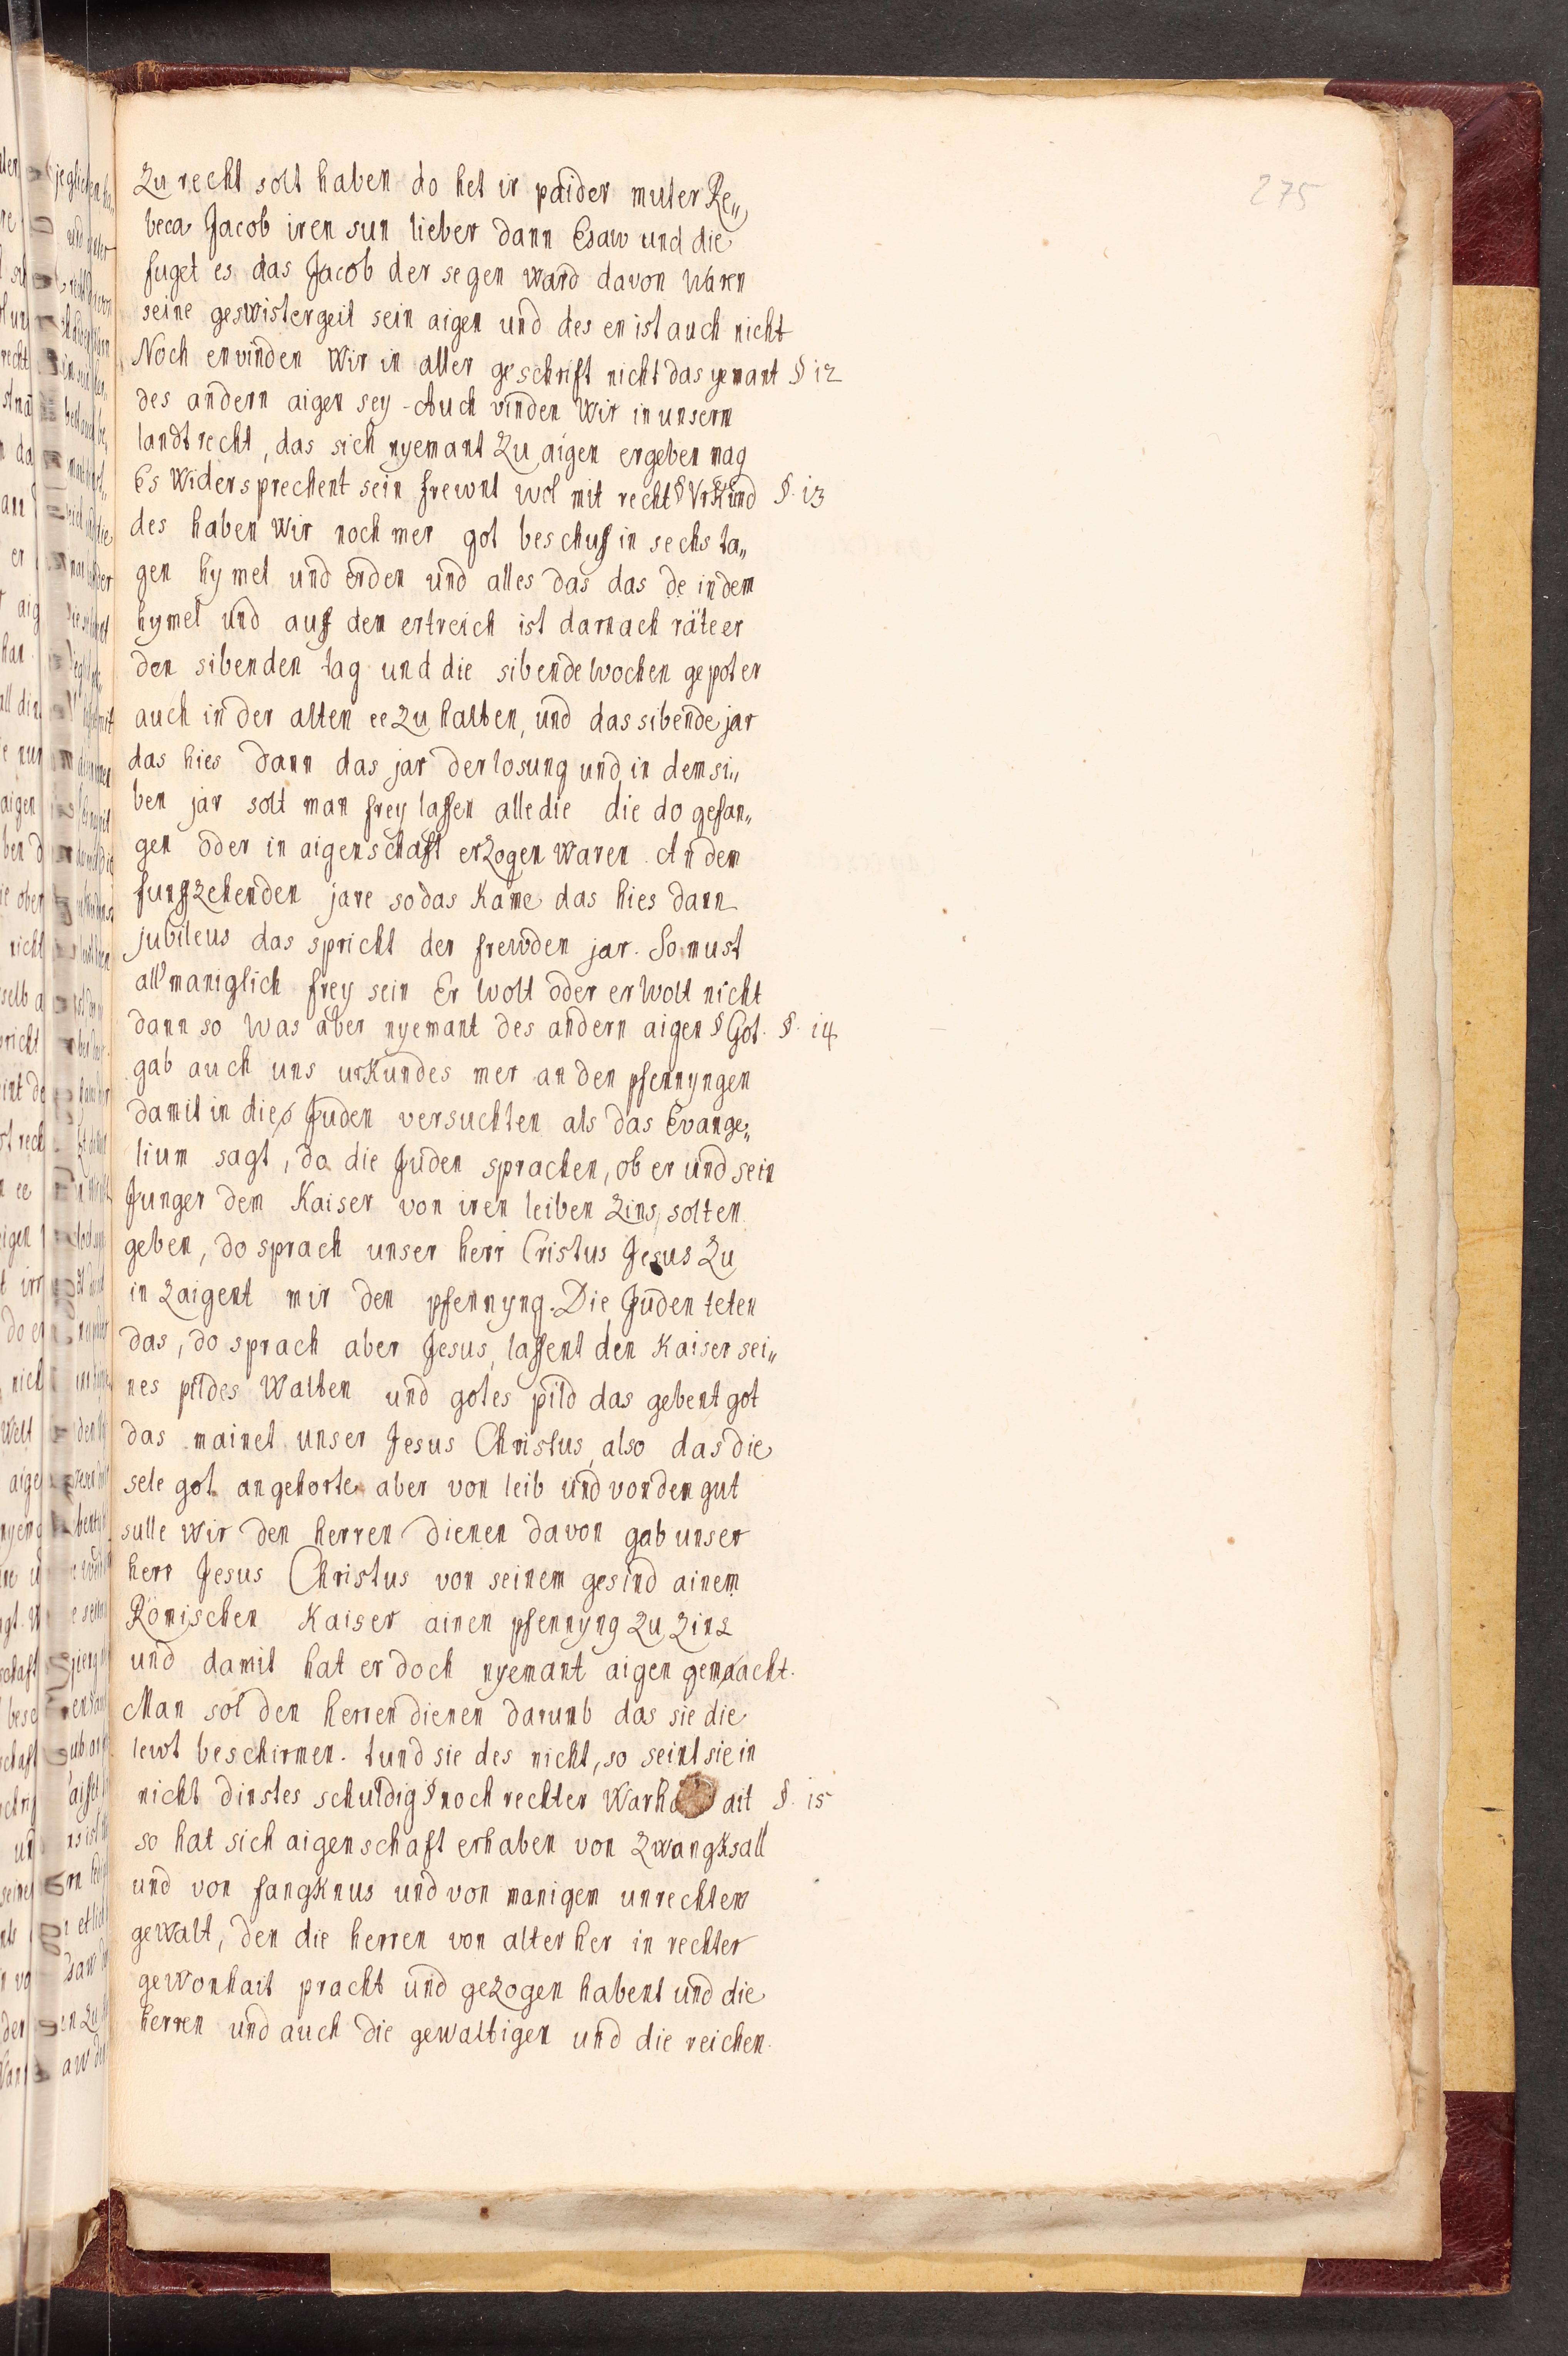 275
Zu recht solt haben do het ir paider muter Re„
beca Jacob iren sun lieber dann Esaw und die
fuget es das Jacob der segen ward davon waren
seine geswistergeit sein aigen und des en ist auch nicht
Noch envinden Wir in aller geschrift nicht das yemant § 12
des andern aigen sey - Auch vinden Wir in unserm
landtrecht, das sich nyemant Zu aigen ergeben mag
Es Widersprechent sein frewnt wol mit recht § Vrkund §. 13
des haben Wir noch mer got beschuf in sechs ta„
gen hymel und erden und alles das das de in dem
hymel und auf dem ertreich ist darnach räte er
den sibenden tag und die sibende wochen gepot er
auch in der alten ee Zu halten, und das sibende jar
das hies dann das jar der losung und in dem si„
ben jar solt man frey lassen alle die die do gefan„
gen oder in aigenschaft erzogen waren. An dem
funfzehenden jare so das Kame das hies dann
jubileus das spricht der frewden jar. So must
all maniglich frey sein Er wolt oder er wolt nicht
dann so was aber nyemant des andern aigen § Got. §. 14
gab auch uns urkundes mer an den pfennyngen
damit in die Juden versuchten als das Evange„
lium sagt, do die Juden sprachen, ob er und sein
Junger dem Kaiser von iren leiben Zins solten
geben, do sprach unser herr Cristus Jesus Zu
in Zaigent mir den pfennyng. Die Juden teten
das, do sprach aber Jesus, lassent den Kaiser sei„
nes pildes Walten und gotes pild das gebent got
das mainet unser Jesus Christus, also das die
sele got angehorte aber von leib und von dem gut
sulle wir den herren dienen davon gab unser
herr Jesus Christus von seinem gesind ainem
Römischen Kaiser ainen pfennyng Zu Zins
und damit hat er doch nyemant aigen gemacht.
Man sol den herren dienen darumb das sie die
lewt beschirmen. tund sie des nicht, so seint sie in
nicht dinstes schuldig § noch rechter Warhait §. 15
so hat sich aigenschaft erhaben von Zwangksall
und von fangknus und von manigem unrechtem
gewalt, den die herren von alter her in rechter
gewonhait pracht und gezogen habent und die
herren und auch die gewaltigen und die reichen.